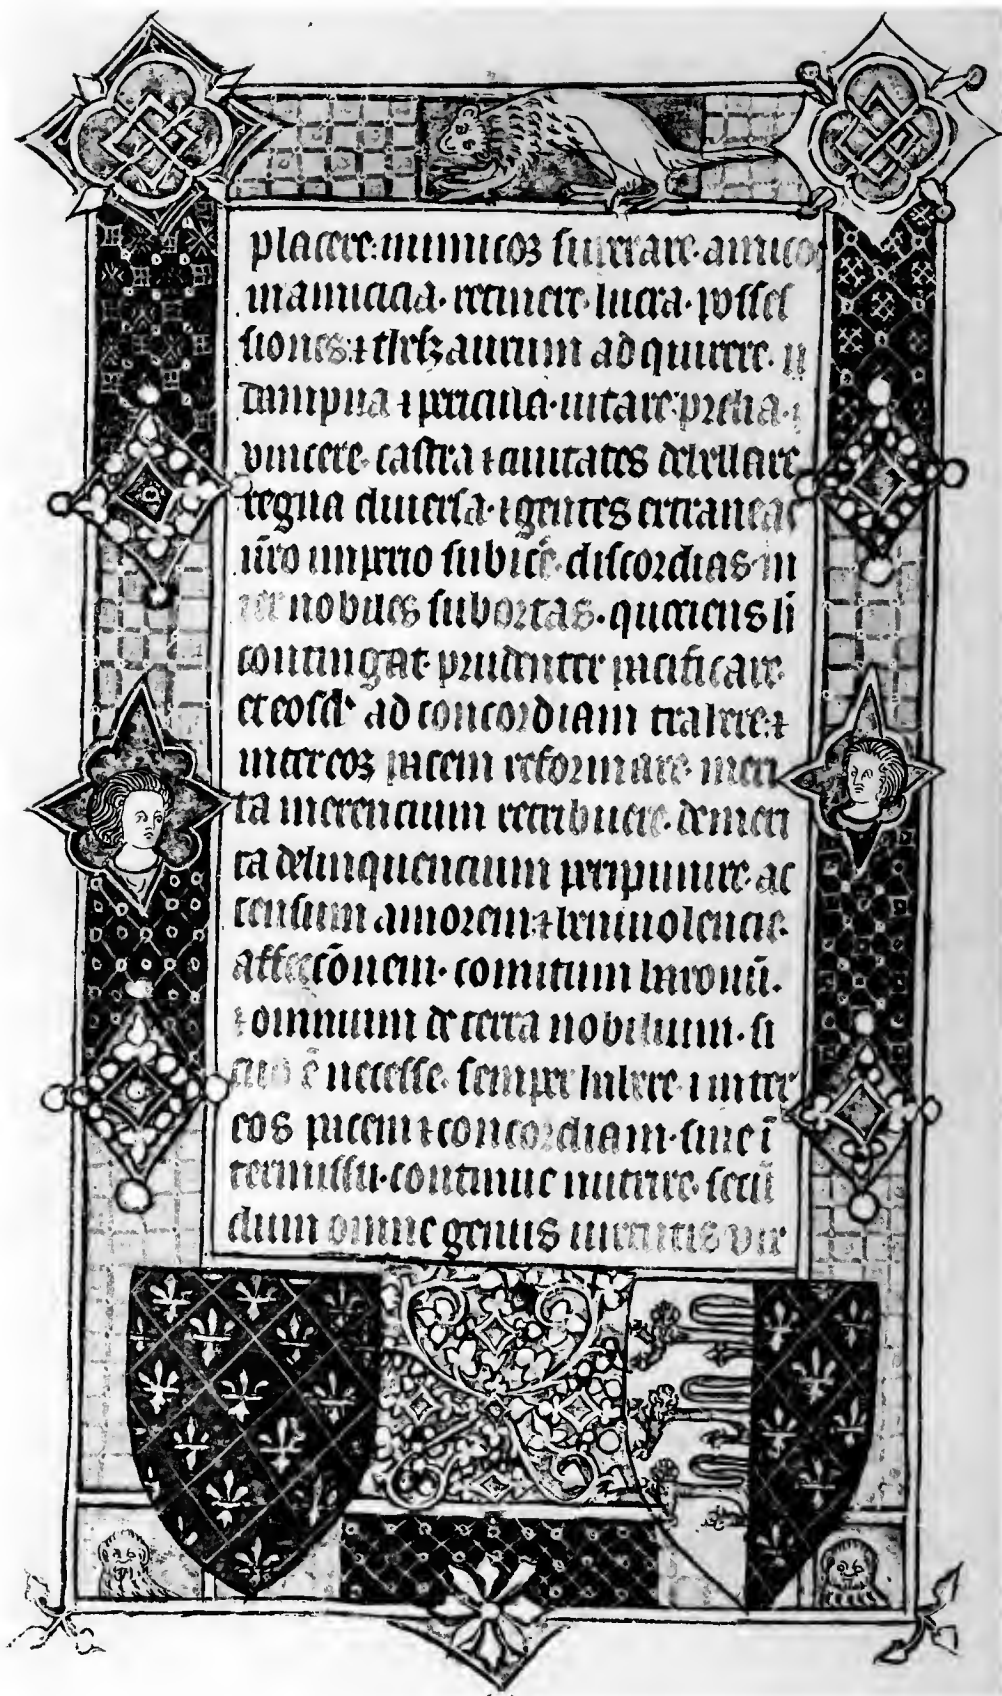 placere: inimicoꝫ superare. amicos
in amicicia. retinere. lucra. posses
siones. ⁊ thesaurum adquirere.
dampna ⁊ pericula. uitare. prelia. ⁊
uincere. castra ⁊ ciuitates debellare
regna diuersa. ⁊ gentes extraneas
ur̄o imperio subicere. discordias. in
ter nobiles subortas. quociens
contingat. prudenter pacificare.
et eosdē ad concordiam trahere. ⁊
inter eoꝫ pacem reformare. meri
ta merencium retribuere. demeri
ta delinquencium punire. ac
censum amorem. ⁊ beniuolencie.
affeccōnem. comitum baronū.
⁊ omnium de terra nobilium. si
cut ē necesse. semper habere. ⁊ inter
eos pacem ⁊ concordiam. sine ī
termissu. continue nutrire. secū
dum omne genus uirtutis uir